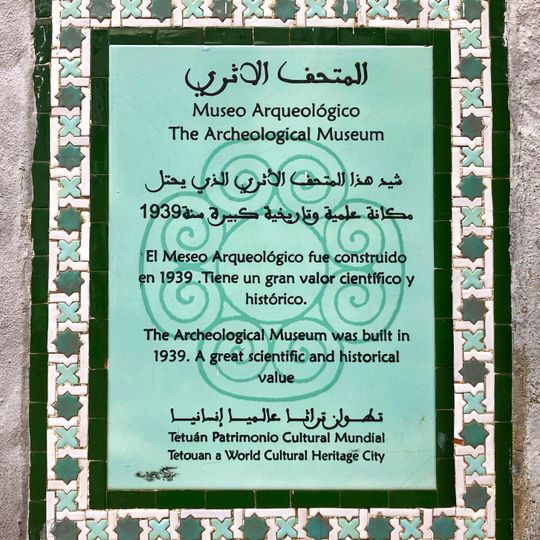 المتحف الاثري
Museo Arqueológico
The Archeological Museum
شيد هذا المتحف الاثري الذي يحتل
مكانة علمية وتاريخية كبيرة سنة1939
El Meseo Arqueológico fue construido
en 1939 .Tiene un gran valor científico y
histórico.
The Archeological Museum was built in
1939. A great scientific and historical
value
تطوان تراثا عالميا إنسانيا
Tetuán Patrimonio Cultural Mundial
Tetouan a World Cultural Heritage City